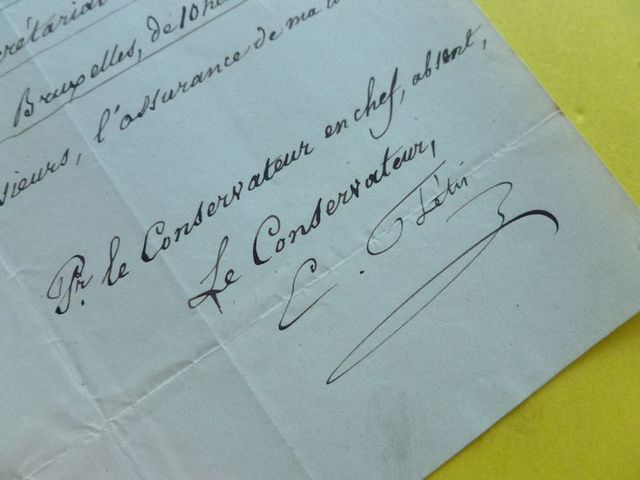 crétariat
Bruxelles, de 10 he
sieurs, l'assurance de ma
Pr. le Conservateur en chef, absent,
Le Conservateur,
E. Fétis